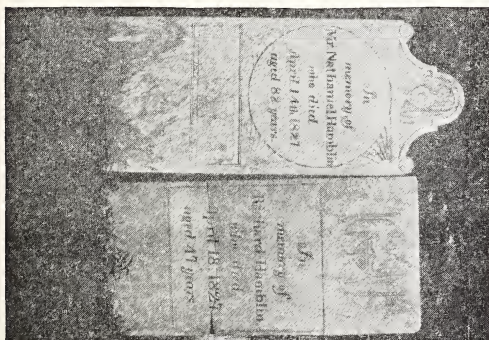 In
memory of
Mr Nathaniel Hamblin
who died
April 14th, 1827
aged 88 years.
In
memory of
Richard Hamblin
who died
April 18, 1827
aged 47 years